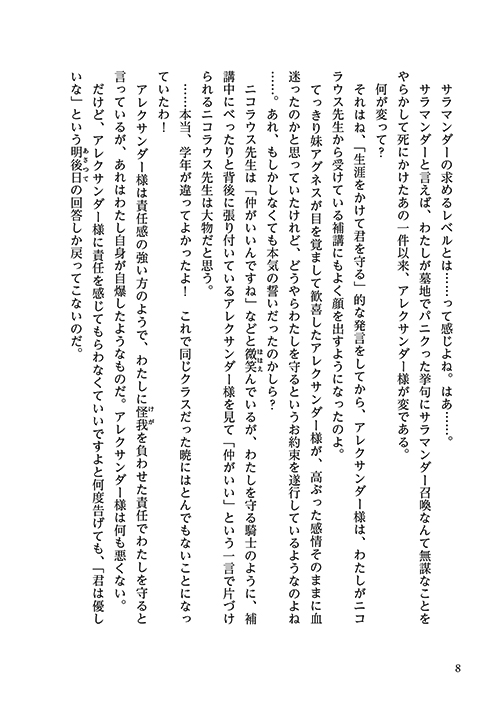 サラマンダーの求めるレベルとは……って感じよね。はあ……。
サラマンダーと言えば、わたしが墓地でパニクった挙句にサラマンダー召喚なんて無謀なことを
やらかして死にかけたあの一件以来、アレクサンダー様が変である。
何が変って？
それはね、「生涯をかけて君を守る」的な発言をしてから、アレクサンダー様は、わたしがニコ
ラウス先生から受けている補講にもよく顔を出すようになったのよ。
てっきり妹アグネスが目を覚まして歓喜したアレクサンダー様が、高ぶった感情そのままに血
迷ったのかと思っていたけれど、どうやらわたしを守るというお約束を遂行しているようなのよね
……。あれ、もしかしなくても本気の誓いだったのかしら？
ニコラウス先生は「仲がいいんですね」などと微笑んでいるが、わたしを守る騎士のように、補
講中にべったりと背後に張り付いているアレクサンダー様を見て「仲がいい」という一言で片づけ
られるニコラウス先生は大物だと思う。
……本当、学年が違ってよかったよ！　これで同じクラスだった暁にはとんでもないことになっ
ていたわ！
アレクサンダー様は責任感の強い方のようで、わたしに怪我を負わせた責任でわたしを守ると
言っているが、あれはわたし自身が自爆したようなものだ。アレクサンダー様は何も悪くない。
だけど、アレクサンダー様に責任を感じてもらわなくていいですよと何度告げても、「君は優し
いな」という明後日の回答しか戻ってこないのだ。
8